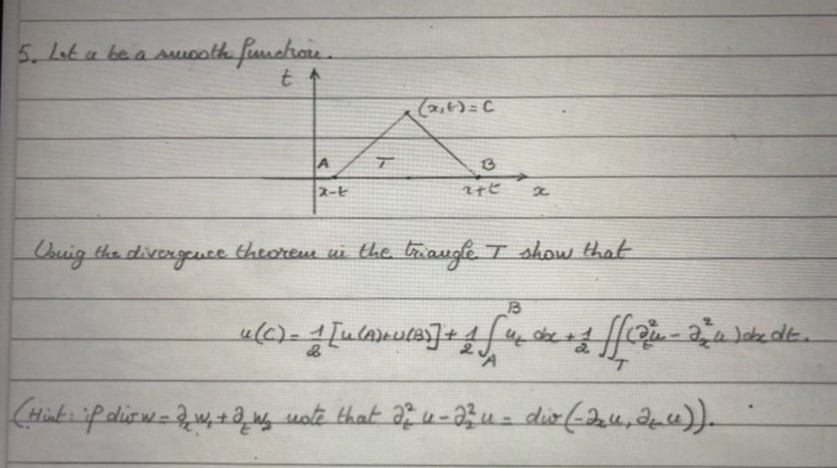 5. Let u be a smooth function.
t
(x,t) = C
A T B
x-t x+t x
Using the divergence theorem in the triangle T show that
u(C) = 1/2 [u(A)+u(B)] + 1/2 ∫_A^B u_t dx + 1/2 ∬_T (∂_t^2 u - ∂_x^2 u) dx dt.
(Hint: if div w = ∂_x w_1 + ∂_t w_2 note that ∂_t^2 u - ∂_x^2 u = div (-∂_x u, ∂_t u)).